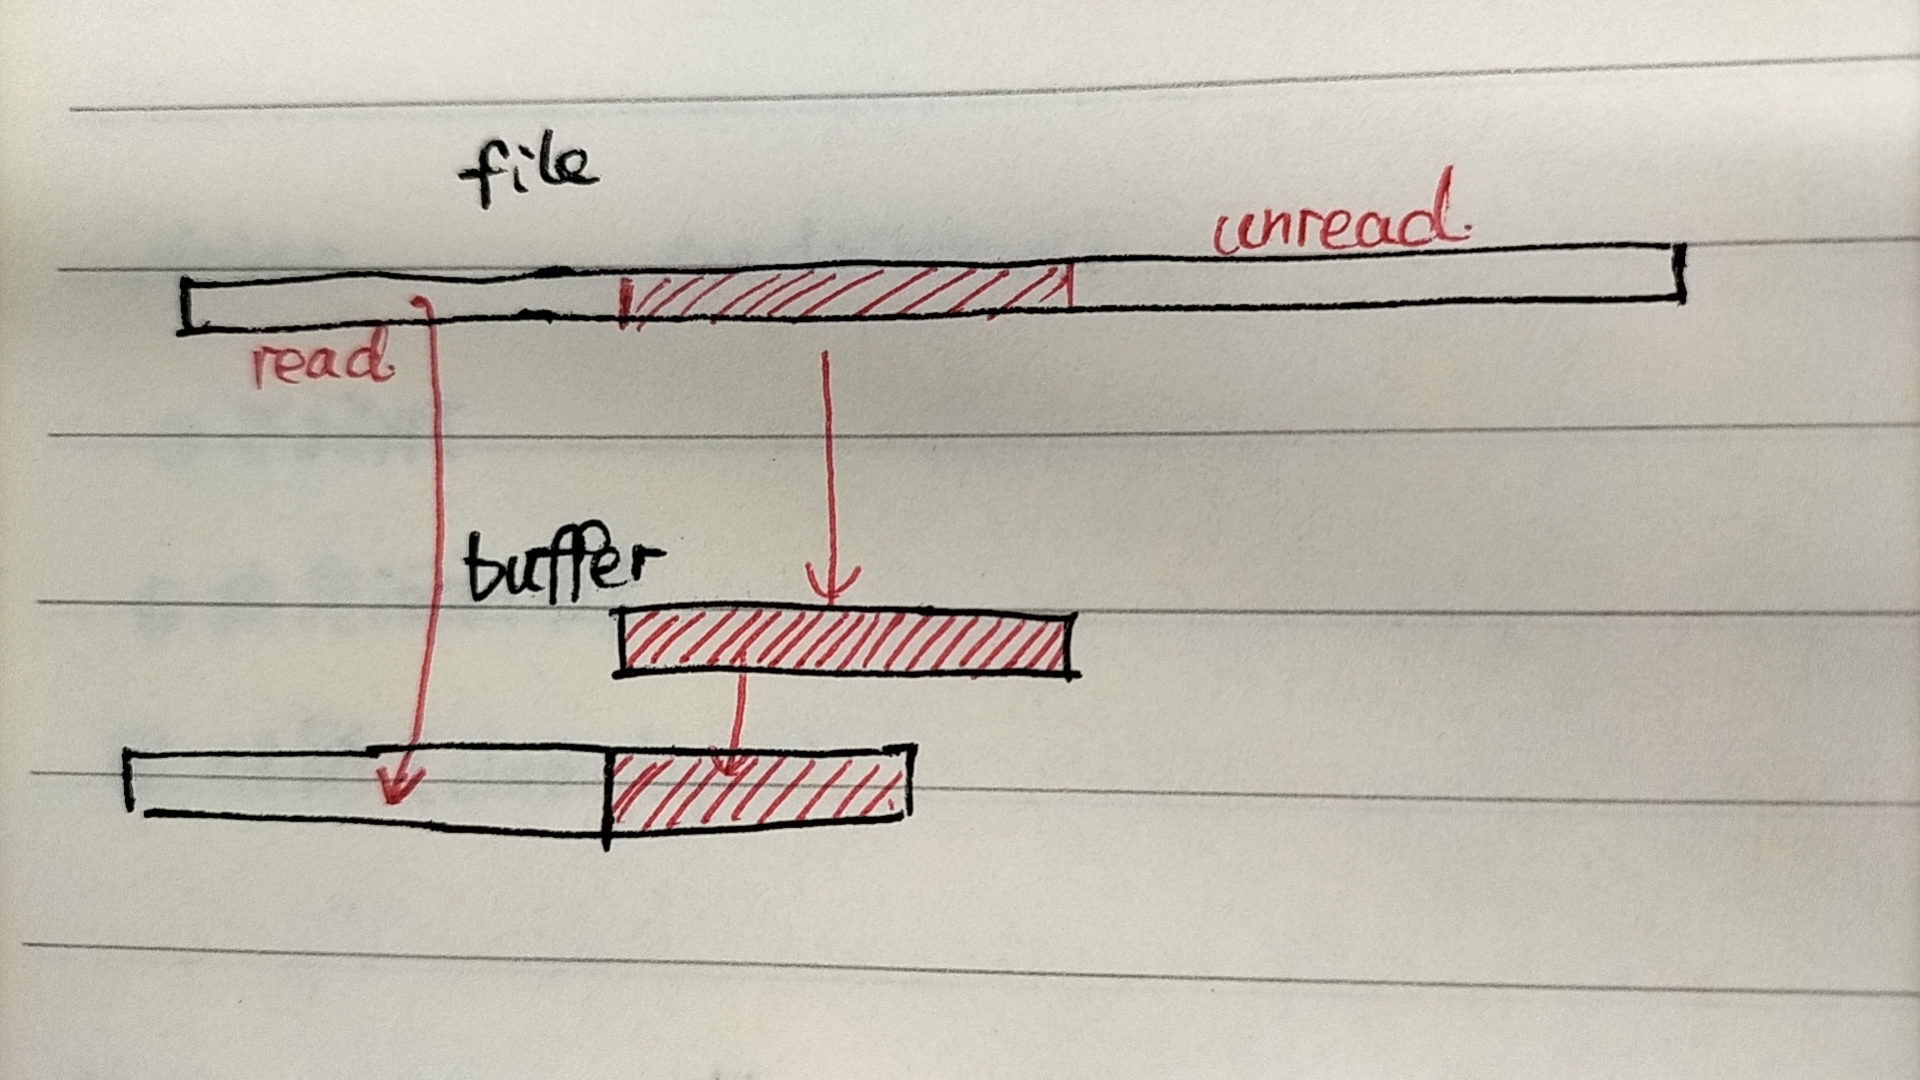 file
unread.
read.
buffer